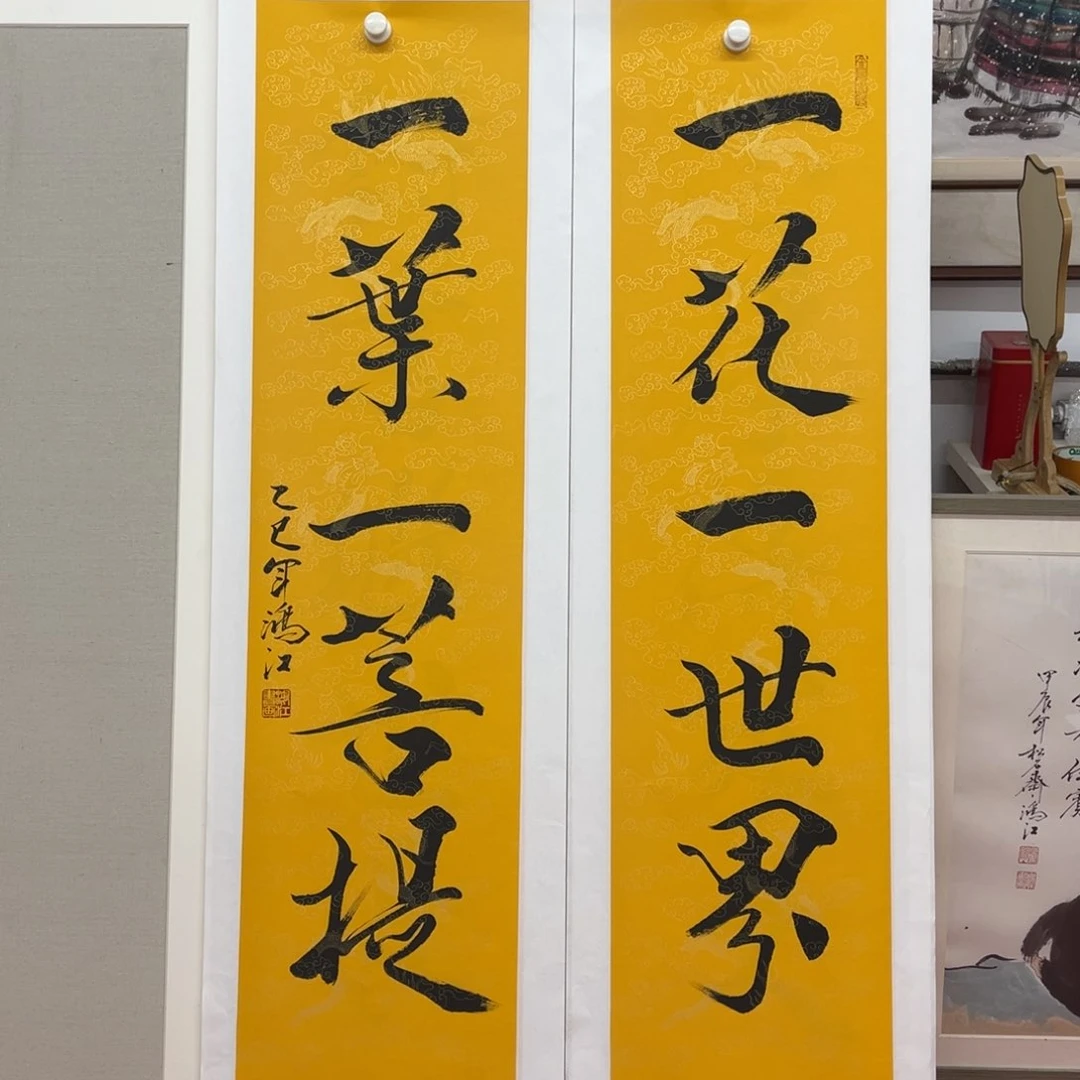 一花一世界
一葉一菩提
乙巳年鴻江
甲辰年松齋鴻江